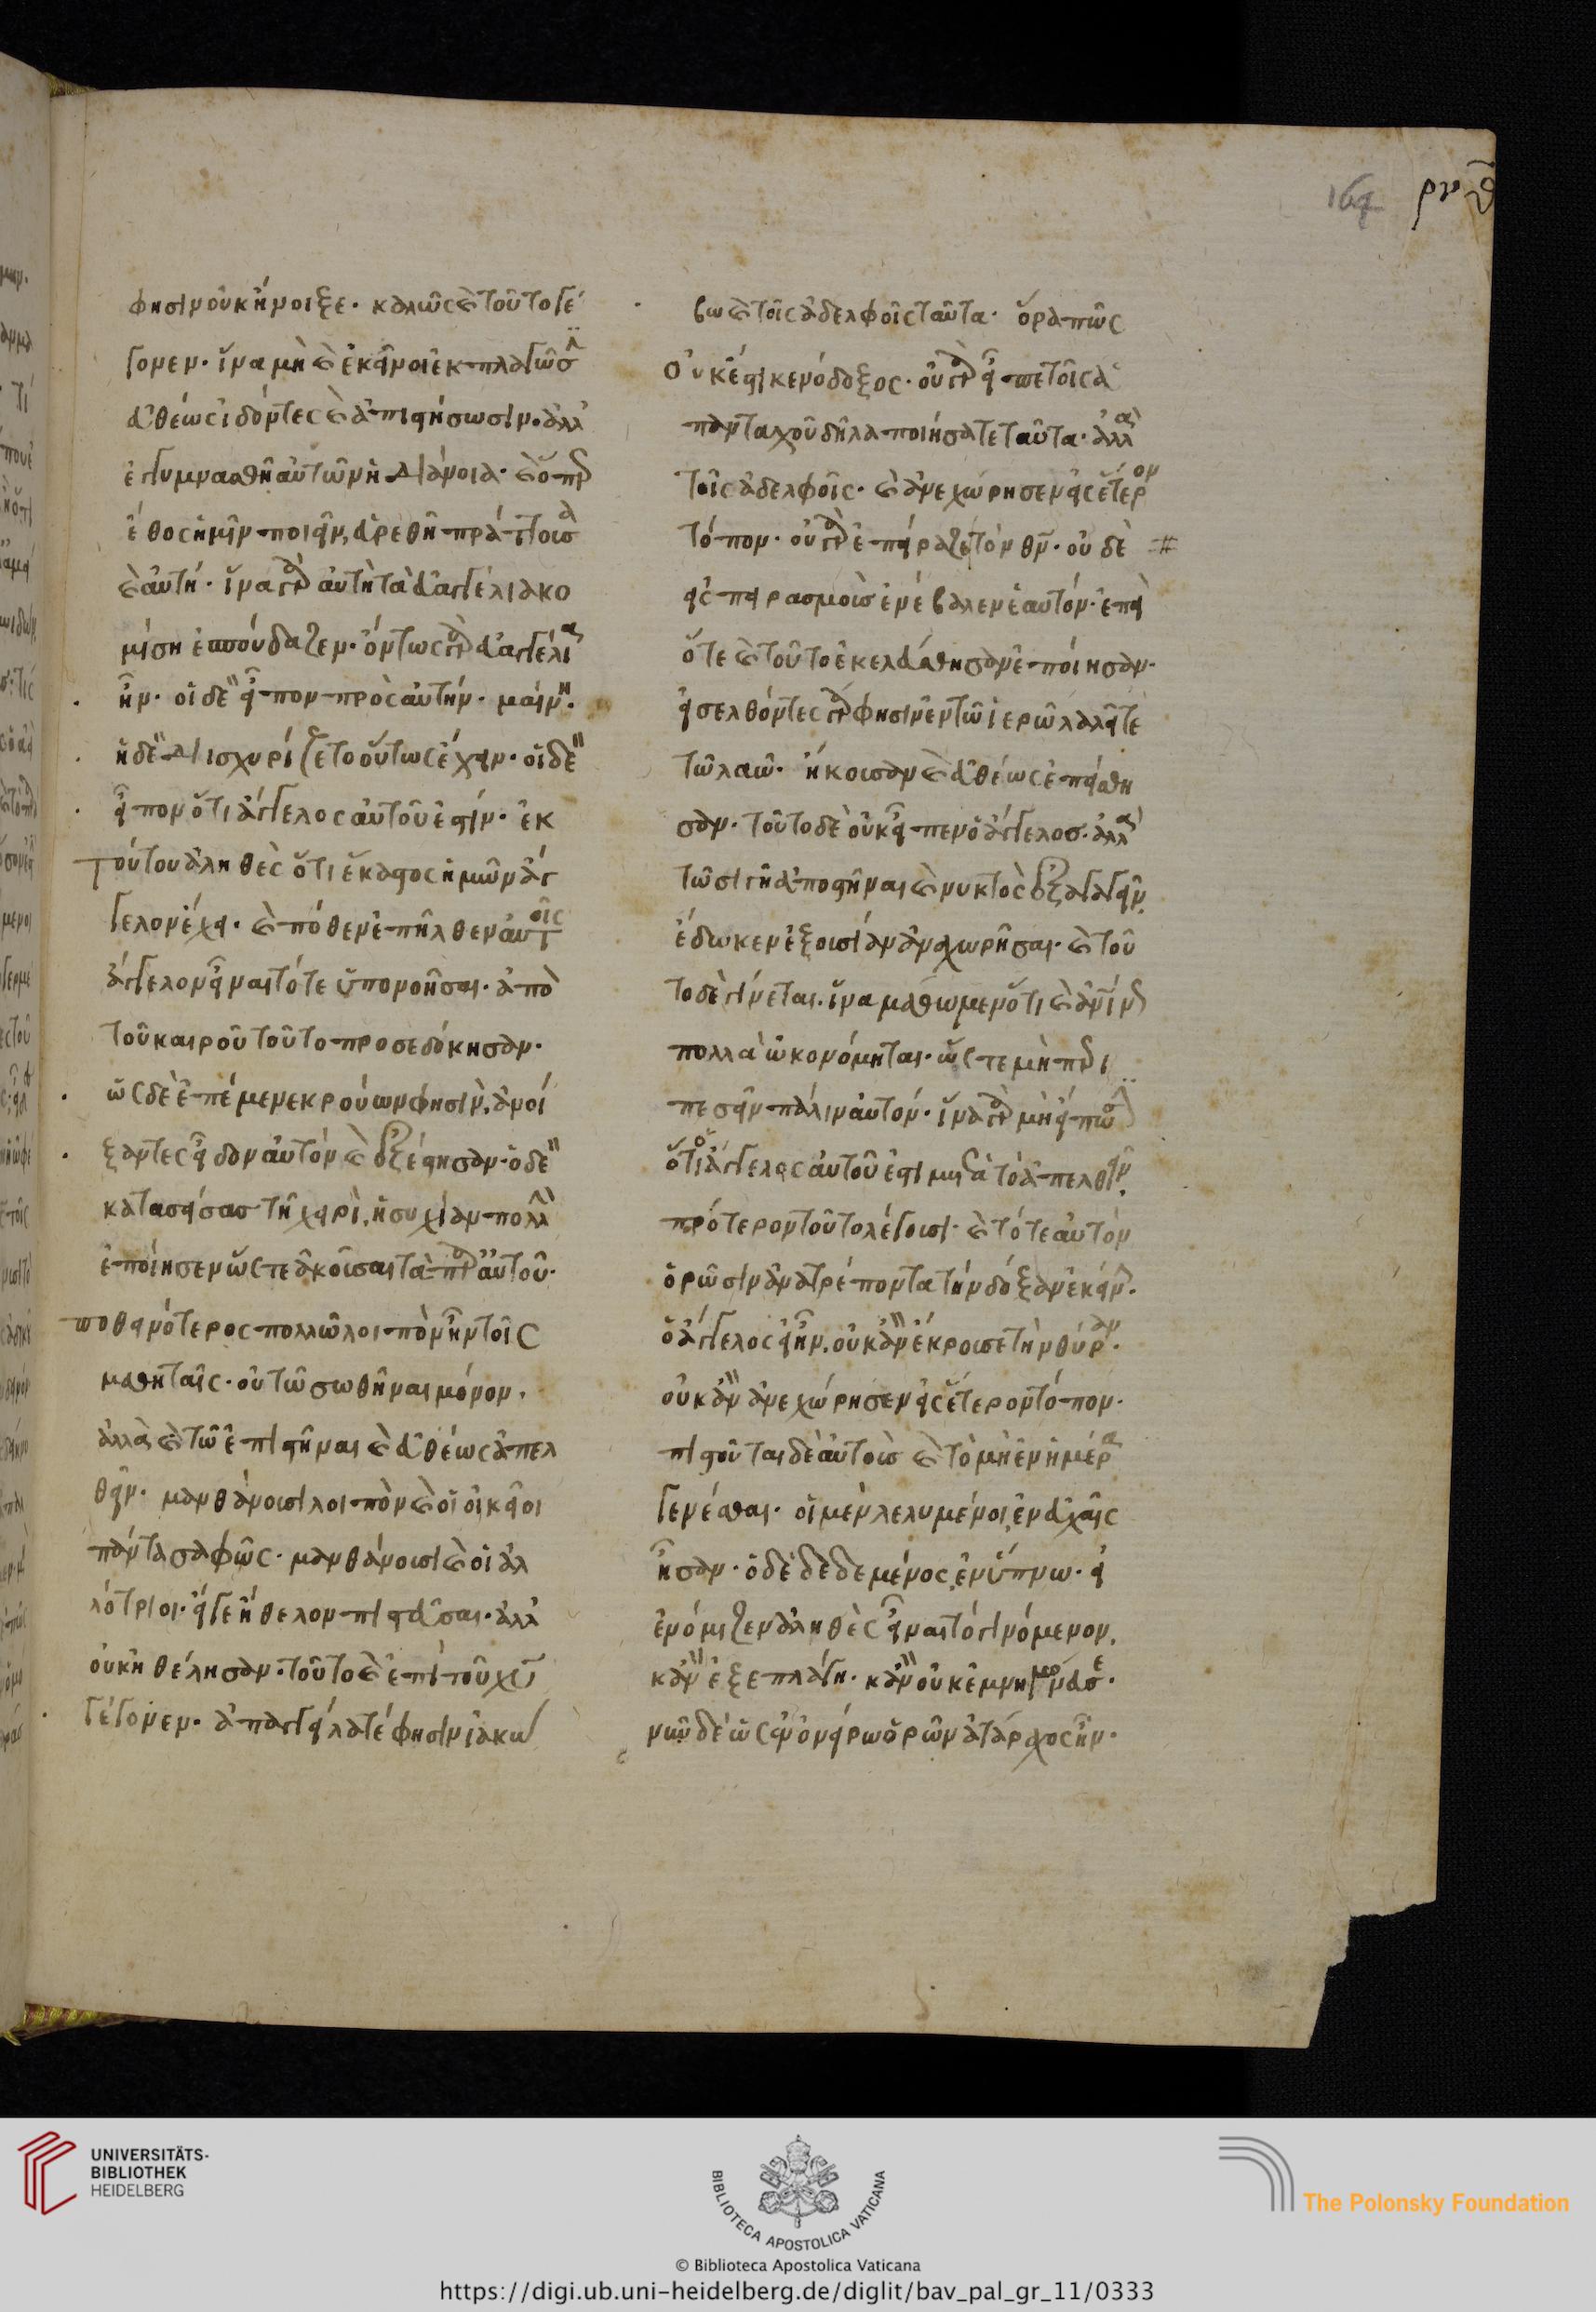 164 ρνθ
φησὶν οὐκ ἤνοιξε. καλῶς καὶ τοῦτο γέ
γονεν. ἵνα μὴ καὶ ἐκεῖνοι ἐκπλαγῶσιν
εὐθέως ἰδόντες καὶ ἀπιστήσωσιν. ἀλλ'
ἐγγυμνασθῆ αὐτῶν ἡ διάνοια. καὶ ὅπερ
ἔθος ἡμῖν ποιεῖν, εὑρέθη πράττουσα
καὶ αὐτή. ἵνα γὰρ αὐτὴ τὰ εὐαγγέλια κο
μίση ἐσπούδαζεν. ὄντως γὰρ εὐαγγέλια
ἦν. οἱ δὲ εἶπον πρὸς αὐτήν. μαίνη.
ἡ δὲ διισχυρίζετο οὕτως ἔχειν. οἱ δὲ
εἶπον ὅτι ἄγγελος αὐτοῦ ἐστιν. ἐκ
τούτου ἀληθὲς ὅτι ἕκαστος ἡμῶν ἄγ
γελον ἔχει. καὶ πόθεν ἐπῆλθεν αὐτοῖς
ἄγγελον εἶναι τότε ὑπονοῆσαι. ἀπὸ
τοῦ καιροῦ τοῦτο προσεδόκησαν.
ὡς δὲ ἐπέμενε κρούων φησὶν, ἀνοί
ξαντες εἶδον αὐτὸν καὶ ἐξέστησαν. ὁ δὲ
κατασείσας τῆ χειρὶ, ἡσυχίαν πολλὴν
ἐποίησεν ὥστε ἀκοῦσαι τὰ περὶ αὐτοῦ.
ποθεινότερος πολλῶ λοιπὸν ἦν τοῖς
μαθηταῖς. οὐ τῶ σωθῆναι μόνον.
ἀλλὰ καὶ τῶ ἐπιστῆναι καὶ εὐθέως ἀπελ
θεῖν. μανθάνουσι λοιπὸν καὶ οἱ οἰκεῖοι
πάντα σαφῶς. μανθάνουσι καὶ οἱ ἀλ
λότριοι. εἴ γε ἤθελον πιστεῦσαι. ἀλλ'
οὐκ ἠθέλησαν. τοῦτο καὶ ἐπὶ τοῦ χυ
γέγονεν. ἀπαγγείλατέ φησιν ἰακώ
βω καὶ τοῖς ἀδελφοῖς ταῦτα. ὅρα πῶς
οὐκ ἔστι κενόδοξος. οὐ γὰρ εἶπε τοῖς ἁ
πανταχοῦ δῆλα ποιήσατε ταῦτα. ἀλλὰ
τοῖς ἀδελφοῖς. καὶ ἀνεχώρησεν εἰς ἕτερον
τόπον. οὐ γὰρ ἐπείραζε τὸν θν. οὐδὲ
εἰς πειρασμοὺς ἐνέβαλεν ἑαυτόν. ἐπεὶ
ὅτε καὶ τοῦτο ἐκελεύσθησαν ἐποίησαν.
εἰσελθόντες γὰρ φησιν ἐν τῶ ἱερῶ λαλεῖτε
τῶ λαῶ. ἤκουσαν καὶ εὐθέως ἐπείσθη
σαν. τοῦτο δὲ οὐκ εἶπεν ὁ ἄγγελος. ἀλλὰ
τῶ σιγῆ ἀποστῆναι καὶ νυκτὸς ἐξαγαγεῖν
ἔδωκεν ἐξουσίαν ἀναχωρῆσαι. καὶ τοῦ
το δὲ γίνεται. ἵνα μάθωμεν ὅτι καὶ ἀνίνως
πολλὰ ὠκονόμηται. ὥστε μὴ περι
πεσεῖν πάλιν αὐτόν. ἵνα γὰρ μὴ εἴπωσιν
ὅτι ὁ ἄγγελος αὐτοῦ ἐστι μετὰ τὸ ἀπελθεῖν,
πρότερον τοῦτο λέγουσι. καὶ τότε αὐτὸν
ὁρῶσιν ἀνατρέποντα τὴν δόξαν ἐκείνην.
ὁ ἄγγελος εἰ ἦν, οὐκ ἂν ἔκρουσε τὴν θύραν.
οὐκ ἂν ἀνεχώρησεν εἰς ἕτερον τόπον.
πιστοῦται δὲ αὐτοὺς καὶ τὸ μὴ ἐν ἡμέρα
γενέσθαι. οἱ μὲν λελυμένοι, ἐν εὐχαῖς
ἦσαν. ὁ δὲ δεδεμένος, ἐν ὕπνω. εἰ
ἐνόμιζεν ἀληθὲς εἶναι τὸ γινόμενον,
κἂν ἐξεπλάγη. κἂν οὐκ ἐμνημόνευσε.
νῦν δὲ ὡς ἐν ὀνείρω ὁρῶν ἀτάραχος ἦν.
UNIVERSITÄTS-
BIBLIOTHEK
HEIDELBERG
BIBLIOTECA APOSTOLICA VATICANA
The Polonsky Foundation
© Biblioteca Apostolica Vaticana
https://digi.ub.uni-heidelberg.de/diglit/bav_pal_gr_11/0333